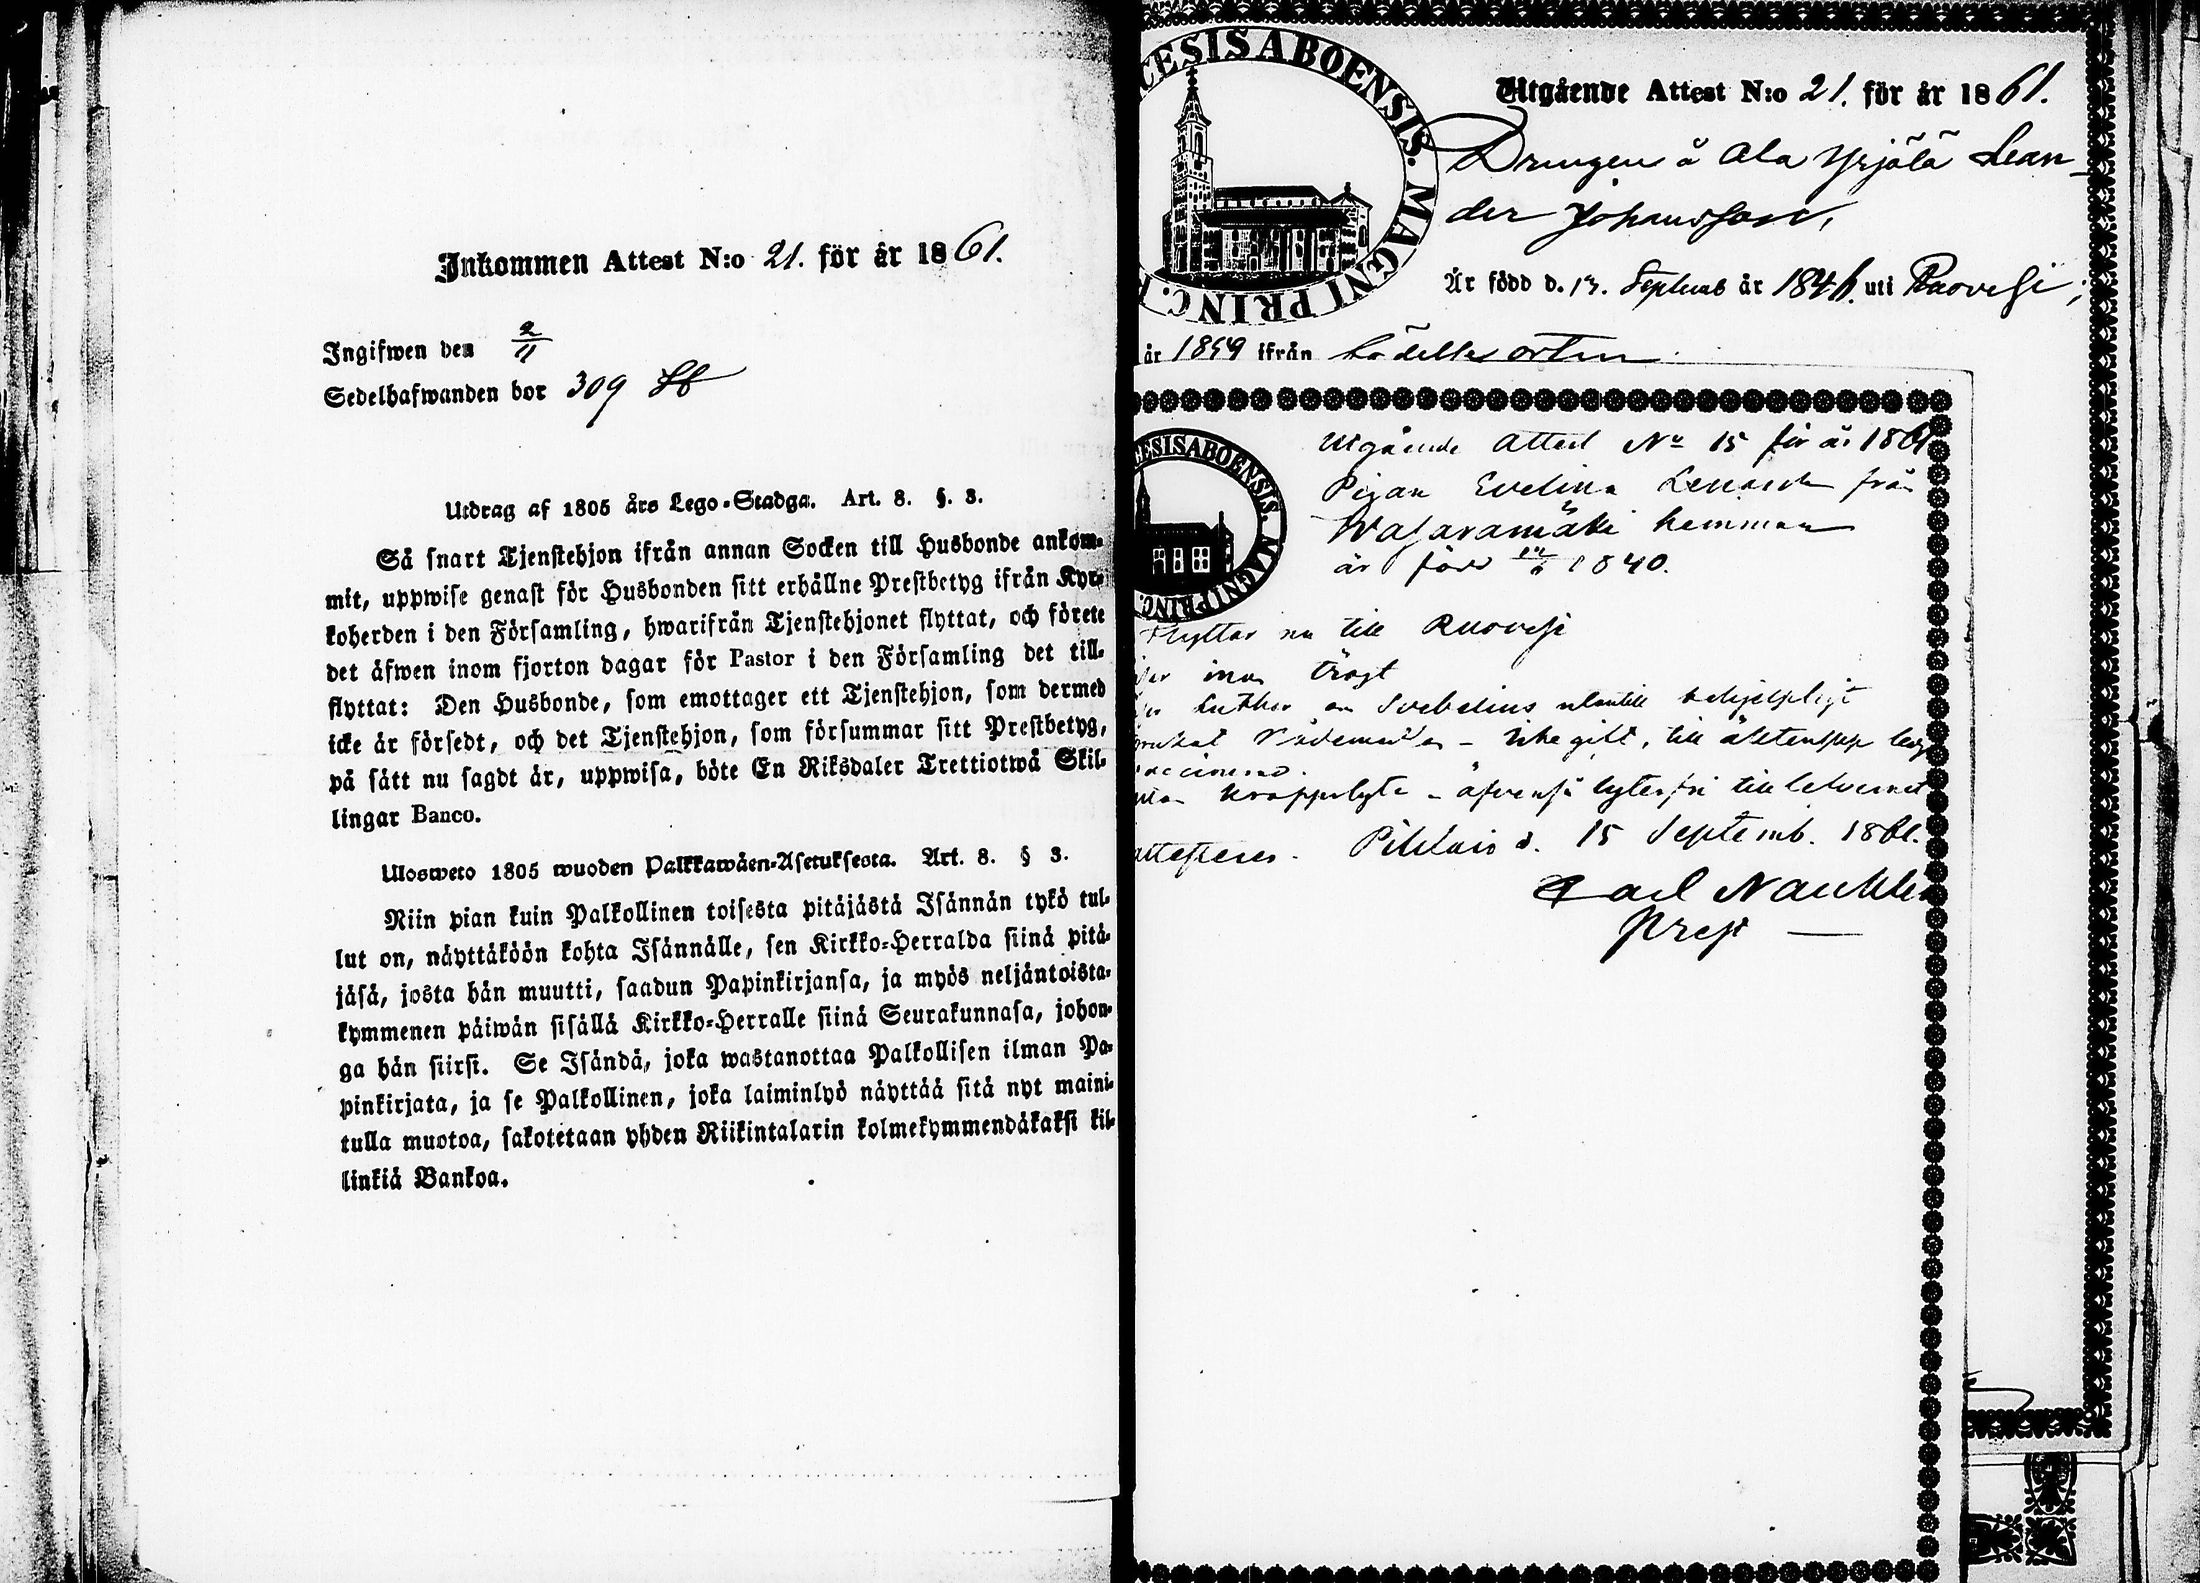 Inkommen Attest N:o 21. för år 1861.
Ingifwen den 2/11
Sedelhafwanden bor 309
Utdrag af 1805 års Lego-Stadga. Art. 8. §. 3.
Så snart Tjenstehjon ifrån annan Socken till Husbonde ankom-
mit, uppwise genast för Husbonden sitt erhållne Prestbetyg ifrån Kyr-
koherden i den Församling, hwarifrån Tjenstehjonet flyttat, och förete
det äfwen inom fjorton dagar för Pastor i den Församling det till-
flyttat: Den Husbonde, som emottager ett Tjenstehjon, som dermed
icke är försedt, och det Tjenstehjon, som försummar sitt Prestbetyg,
på sätt nu sagdt är, uppwisa, böte En Riksdaler Trettiotwå Skil-
lingar Banco.
Ulosweto 1805 wuoden Palkkawäen-Asetuksesta. Art. 8. § 3.
Niin pian kuin Palkollinen toisesta pitäjästä Isännän tykö tul-
lut on, näyttäköön kohta Isännälle, sen Kirkko-Herralda siinä pitä-
jäsä, josta hän muutti, saadun Papinkirjansa, ja myös neljäntoista-
kymmenen päiwän sisällä Kirkko-Herralle siinä Seurakunnasa, johon-
ga hän siirsi. Se Isändä, joka wastanottaa Palkollisen ilman Pa-
pinkirjata, ja se Palkollinen, joka laiminlyö näyttää sitä nyt maini-
tulla muotoa, sakotetaan yhden Riikintalarin kolmekymmendäkaksi kil-
linkiä Bankoa.
CESIS ABOENSIS. MAGNI PRINC.
Utgående Attest N:o 21. för år 1861.
Drengen å Ala Yrjälä Lean-
der Johansson,
Är född d. 13. Septemb år 1846. uti Ruovesi;
år 1859 ifrån södelsorten
CESIS ABOENSIS. MAGNI PRINC.
Utgående Attest No 15 för år 1861
Pigan Evelina från
Wasaramäki hemman
är född 1840.
Flyttar nu till Ruovesi
inn trögt
Luther Svebelius utantill behjelpligt
Nådemedlen - till äktenskap ledig
- äfvenså lytesfri till
attesteres. Pihlais d. 15 Septemb. 1861.
Carl
Prest